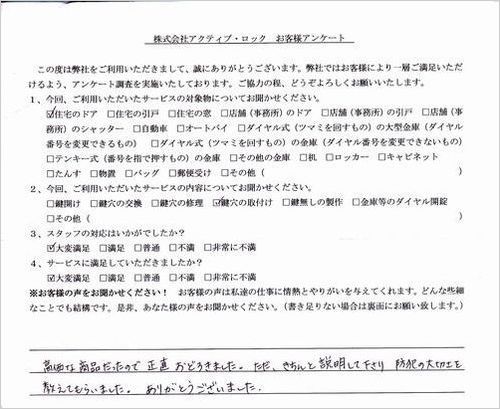 株式会社アクティブ・ロック　お客様アンケート
この度は弊社をご利用いただきまして、誠にありがとうございます。弊社ではお客様により一層ご満足いただ
けるよう、アンケート調査を実施いたしております。ご協力の程、どうぞよろしくお願いいたします。
1、今回、ご利用いただいたサービスの対象物についてお聞かせください。
☑住宅のドア　□住宅の引戸　□住宅の窓　□店舗(事務所)のドア　□店舗(事務所)の引戸　□店舗(事
務所)のシャッター　□自動車　□オートバイ　□ダイヤル式(ツマミを回すもの)の大型金庫(ダイヤル
番号を変更できるもの)　□ダイヤル式(ツマミを回すもの)の金庫(ダイヤル番号を変更できないもの)
□テンキー式(番号を指で押すもの)の金庫　□その他の金庫　□机　□ロッカー　□キャビネット
□たんす　□物置　□バッグ　□郵便受け　□その他(　)
2、今回、ご利用いただいたサービスの内容についてお聞かせください。
□鍵開け　□鍵穴の交換　□鍵穴の修理　☑鍵穴の取付け　□鍵無しの製作　□金庫等のダイヤル開錠
□その他(　)
3、スタッフの対応はいかがでしたか?
☑大変満足　□満足　□普通　□不満　□非常に不満
4、サービスに満足していただきましたか?
☑大変満足　□満足　□普通　□不満　□非常に不満
※お客様の声をお聞かせください!　お客様の声は私達の仕事に情熱とやりがいを与えてくれます。どんな些細
なことでも結構です。是非、あなた様の声をお聞かせください。(書き足りない場合は裏面にお願い致します。)
高価な商品だったので正直おどろきました。ただ、きちんと説明して下さり防犯の大切さを
教えてもらいました。ありがとうございました.